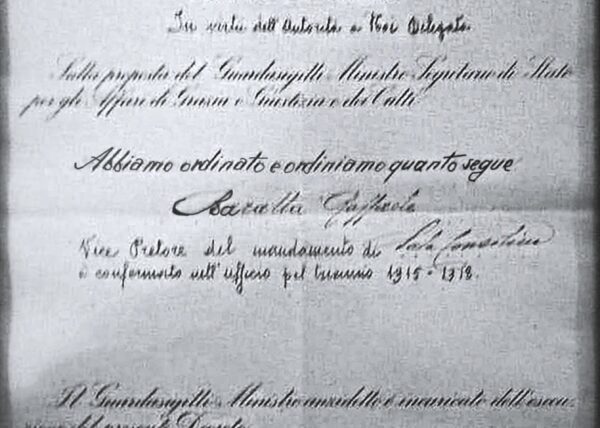 In virtù dell'Autorità a Noi Delegata
Sulla proposta del Guardasigilli Ministro Segretario di Stato
per gli Affari di Grazia e Giustizia e dei Culti
Abbiamo ordinato e ordiniamo quanto segue
Vice Pretore del mandamento di Sala Consilina
è confermato nell'ufficio pel triennio 1915-1918.
Il Guardasigilli Ministro anzidetto è incaricato dell'esecu
zione del presente Decreto